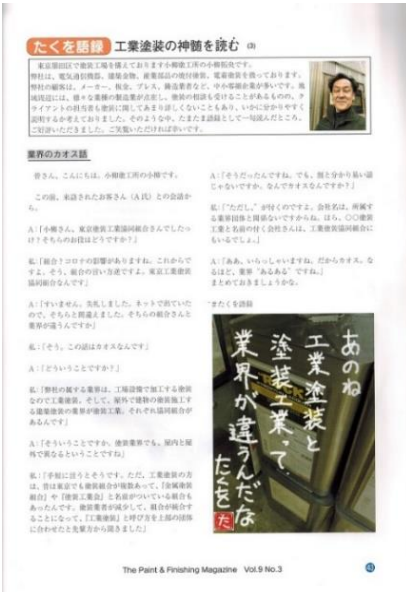 たくを語録 工業塗装の神髄を読む (3)
東京墨田区で塗装工場を構えております小柳塗工所の小柳拓央です。
弊社は、電気通信機器、建築金物、産業部品の焼付塗装、電着塗装を扱っております。
弊社の顧客は、メーカー、板金、プレス、鋳造業者など、中小零細企業が多いです。地
域周辺には、様々な業種の製造業が点在し、塗装の相談も受けることがあるものの、ク
ライアントの担当者も塗装に関してあまり詳しくないこともあり、いかに分かりやすく
説明するか考えておりました。そのような中、たまたま語録として一句読んだところ、
ご好評いただきました。ご笑覧いただければ幸いです。
業界のカオス話
皆さん、こんにちは。小柳塗工所の小柳です。
この前、来訪されたお客さん（A氏）との会話か
ら。
A：「小柳さん、東京塗装工業協同組合さんでしたっ
け？そちらのお役はどうですか？」
私：「組合？コロナの影響がありますね。これからで
すよ。そう、組合の言い方送ですよ。東京工業塗装
協同組合なんです」
A：「すいません、失礼しました。ネットで出ていた
ので、そちらと間違えました。そちらの組合さんと
業界が違うんですか」
私：「そう、この話はカオスなんです」
A：「どういうことですか？」
私：「弊社の属する業界は、工場設備で加工する塗装
なので工業塗装。そして、屋外で建物の塗装施工す
る建築塗装の業界が塗装工業。それぞれ協同組合が
あるんです」
A：「そういうことですか。塗装業界でも、屋内と屋
外で異なるということですね」
私：「手短に言うとそうです。ただ、工業塗装の方
は、昔は東京でも塗装組合が複数あって、『金属塗装
組合』や『塗装工業会』と名前がついている組合も
あったんです。塗装業者が減少して、組合が統合す
ることになって、『工業塗装』と呼び方を上部の団体
に合わせたと先輩方から聞きました」
A：「そうだったんですね。でも、割と分かり易い話
じゃないですか。なんでカオスなんですか？」
私：「“ただし”が付くのですよ。会社名は、所属す
る業界団体と関係ないですからね。ほら、〇〇塗装
工業と名前の付く会社さんは、工業塗装協同組合に
もいるでしょ。」
A：「ああ、いらっしゃいますね。だからカオス。な
るほど、業界“あるある”ですね。」
まとめておきましょうかな。
たくを語録
あのね
工業塗装と
塗装工業って、
業界が違うんだな
たくを
た
The Paint & Finishing Magazine Vol.9 No.3